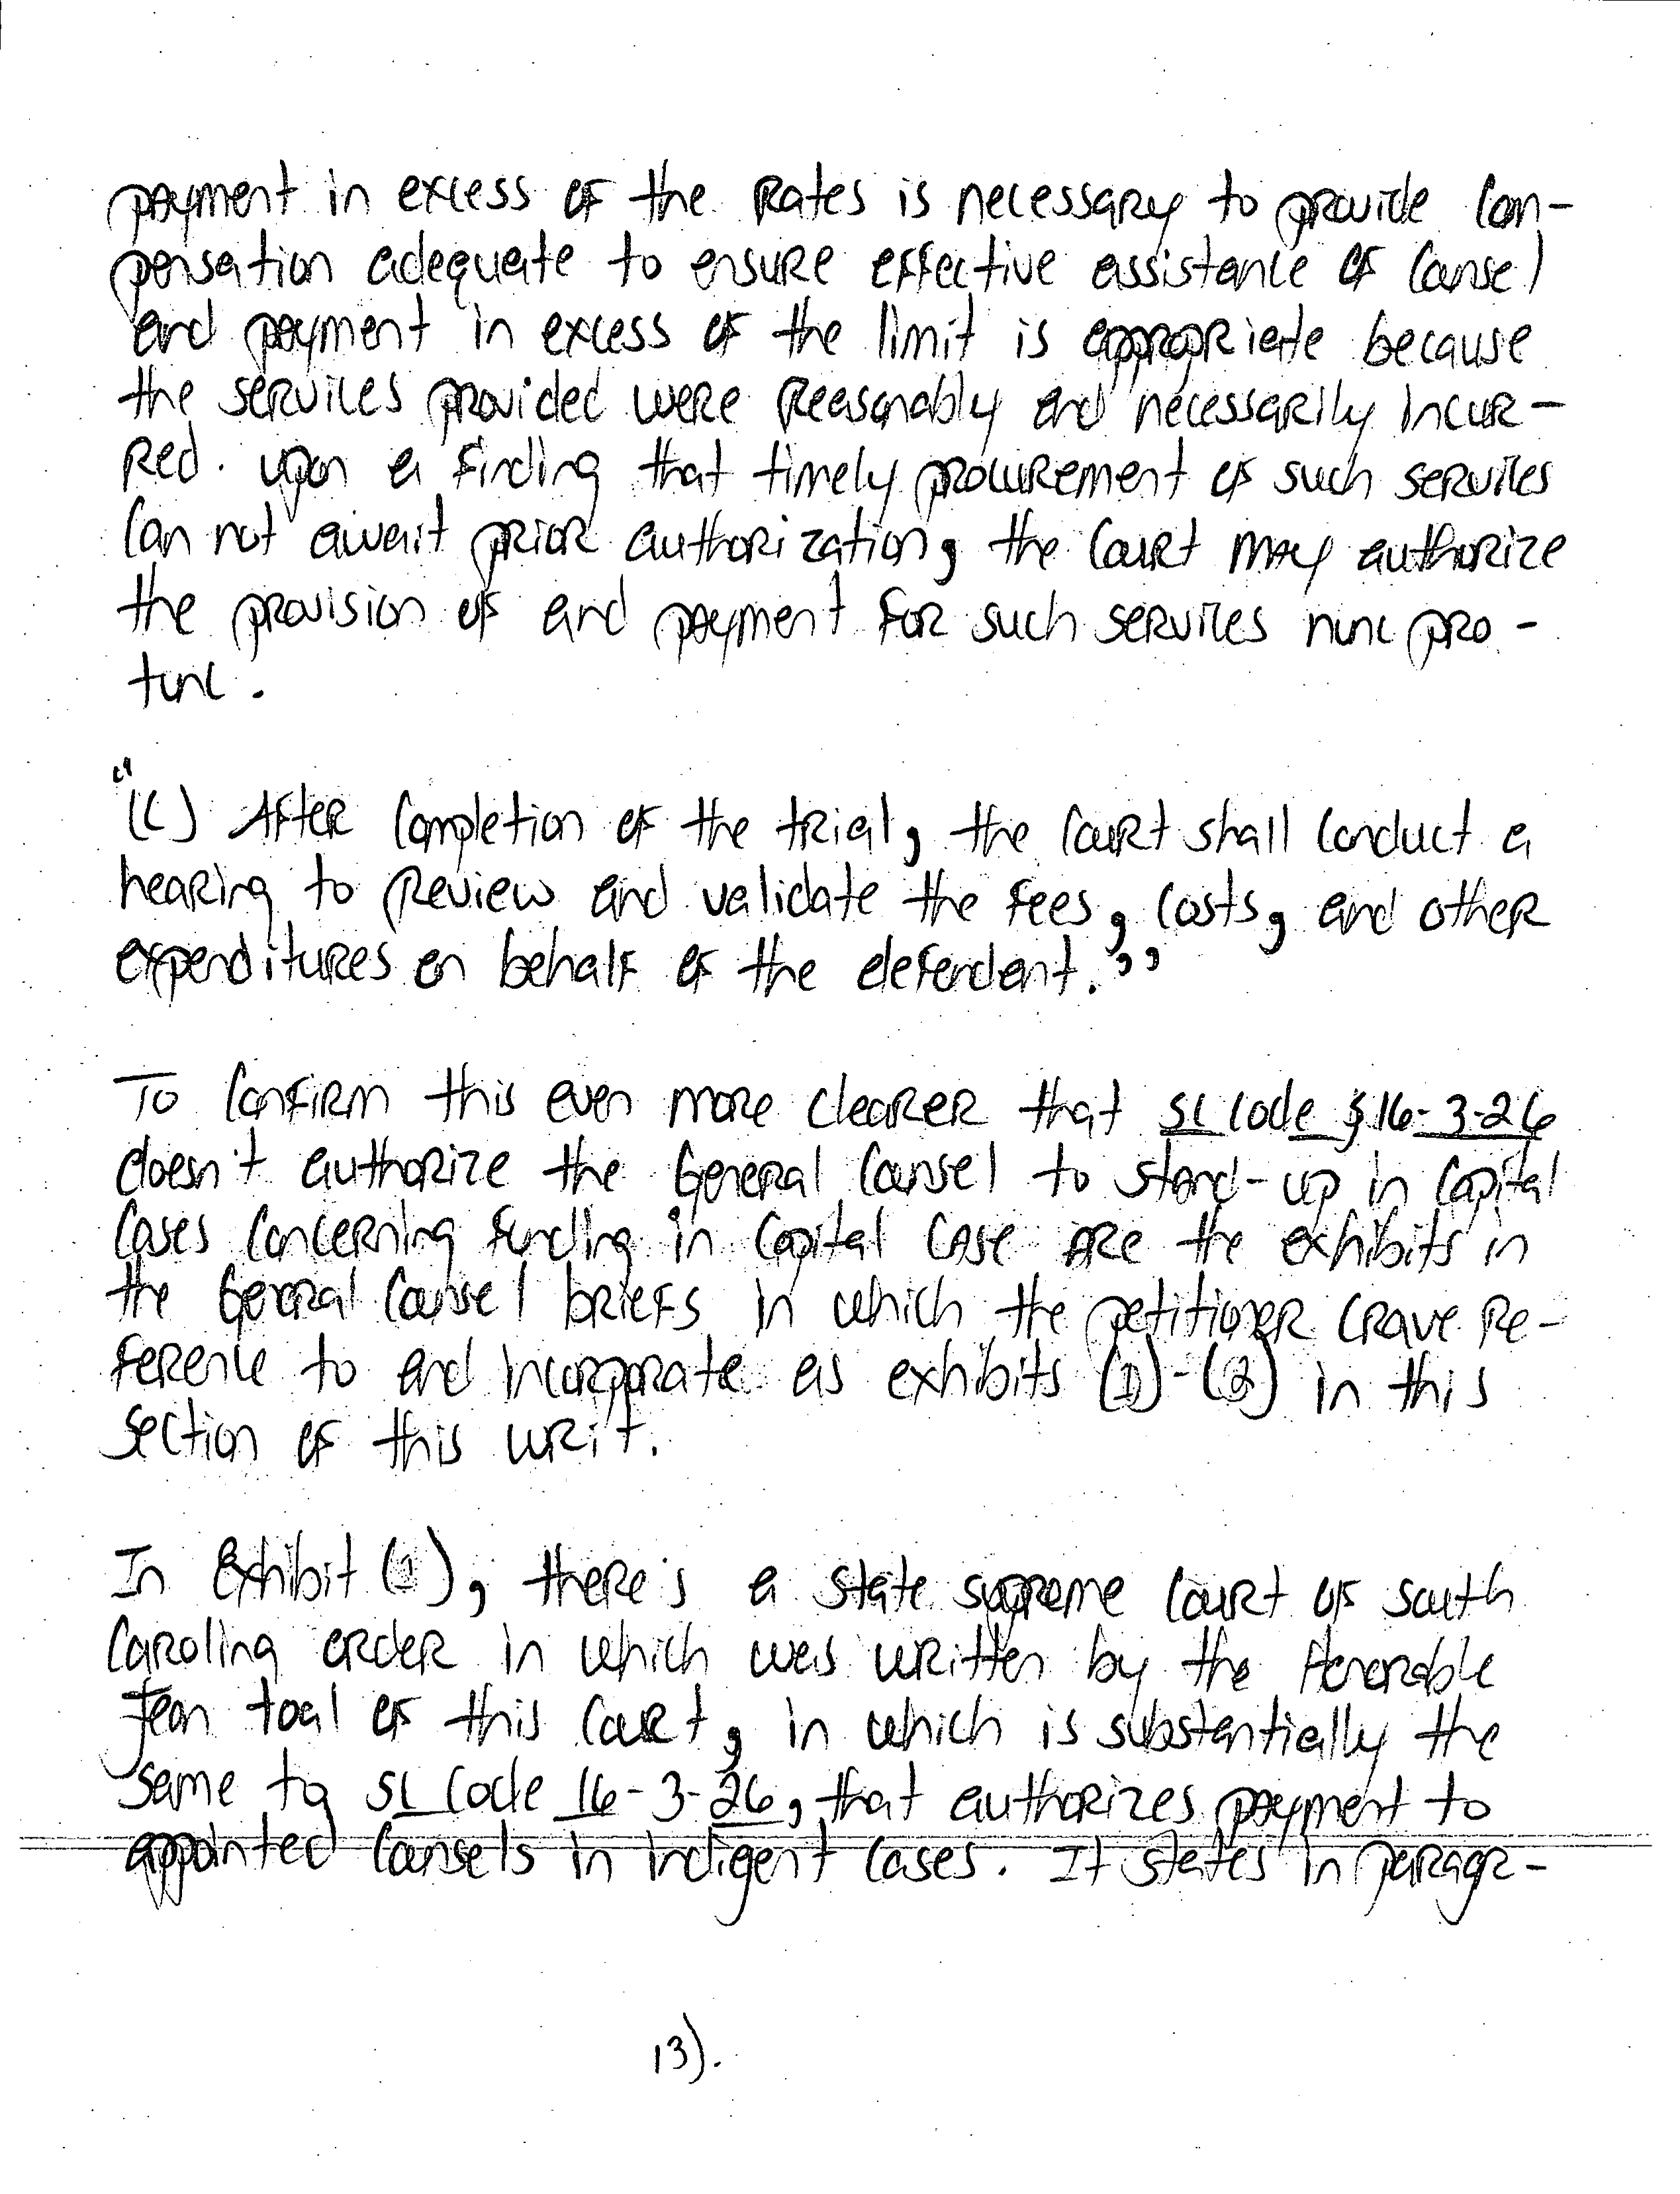 payment in excess of the Rates is necessary to provide com-
pensation adequate to ensure effective assistance of counsel
and payment in excess of the limit is appropriate because
the services provided were Reasonably and necessarily incur-
Red. upon a finding that timely procurement of such services
can not await prior authorization, the Court may authorize
the provision of and payment for such services nunc pro -
tunc.
"(C) After completion of the trial, the Court shall conduct a
hearing to Review and validate the fees, costs, and other
expenditures on behalf of the defendant."
To confirm this even more clearer that SC Code § 16-3-26
doesn't authorize the General Counsel to stand-up in Capital
Cases concerning funding in Capital Case are the exhibits in
the General Counsel briefs in which the petitioner crave Re-
ference to and incorporate as exhibits (1)-(2) in this
section of this writ.
In Exhibit (1), there's a state supreme Court of south
Carolina order in which was written by the Honorable
Jean toal of this Court, in which is substantially the
same to SC Code 16-3-26, that authorizes payment to
appointed Counsels in indigent Cases. It states in paragr-
13).